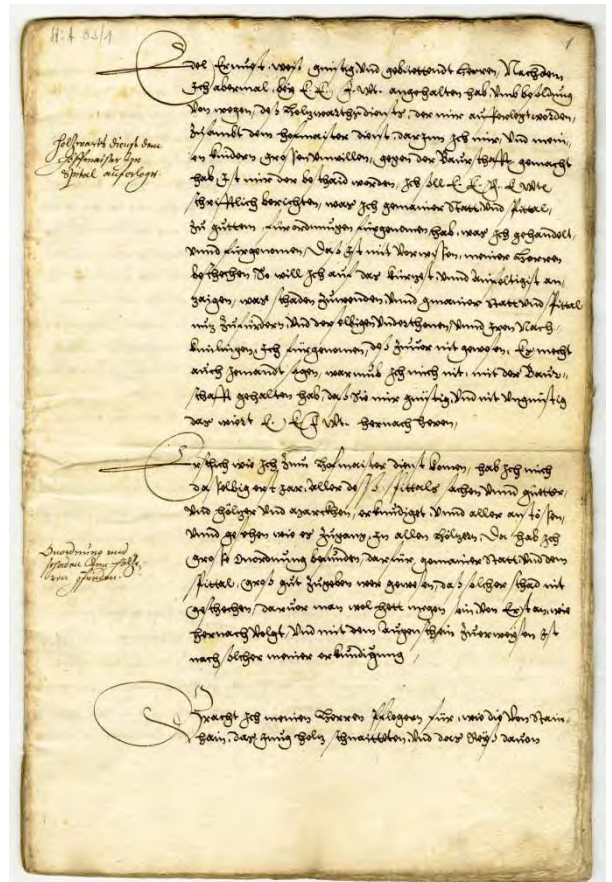 H: A 83/1
1
Edel Ernvest, weiß günstig, Vnd gebiettendt herren, Nachdem
Ich abermal, bey E. E. F. Wt. angehalten hab Vmb besoldung
Von wegen, deß holzwarths diensts, der mir aufferlegt worden,
Zusambt dem hofmaister dienst, darzun Ich mir, Vnd mein-
en kindern grossen vnwillen, gegen der Baurschafft gemacht
hab, Ist mir der beschaid worden, Ich soll E. E. F. E Wte
schrifftlich berichten, was Ich gemainer Statt, Vnd Spittal,
Zu gutten, fürordnungen fürgenomen hab, was Ich gehandelt,
vnnd fürgenomen, Daß Ist mit Vorwissen, meiner herren
beschechen So will Ich auf das kürzest, Vnnd ainfeltigist an-
zaigen, was schaden Zuwenden, Vnnd gmainer Statt Vnd Spittal
nuz Zufürdern, Vnd der selbigen Vnderthonen, Vnnd Iren Nach-
kumlingen, Ich fürgenomen, deß Zuuor nit gewesen, Es mecht
auch Jemandt sagen, warumb Ich mich nit, mit der Baur-
schafft gehalten hab, daß Sie mir günstig, Vnd nit Vngünstig
das wiert E. E F Wt. hernach heren,
holzwarts dienst dem
hoffmaister Im
Spital auferlegt.
Erstlich wie Ich Zum hofmaister dienst komen, hab Ich mich
da selbig erst Jar, aller deß Spittals sachen Vnnd güetter,
Vnd hölzer Vnd marckhen, erkundiget, Vnnd aller anstössen,
Vnnd gesehen wie es Zugang, In allen hölzern, Da hab Ich
grosse Vnordnung befunden, darfür, gemainer Statt, Vnd dem
Spittal, groß gut Zugeben wer gewesen, daß solcher schad nit
geschechen, daruor man wol hett megen sein, Von Erst an, wie
hernach Volgt, Vnd mit dem augenschein Zuerweysen Ist
nach solcher meiner erkundigung,
Vnordnung und
schaden
Bracht Ich meinen herren Pflegern für, wie die Von Stain-
hain, das Jung holz schnaitteten, Vnd das Reyß dauon